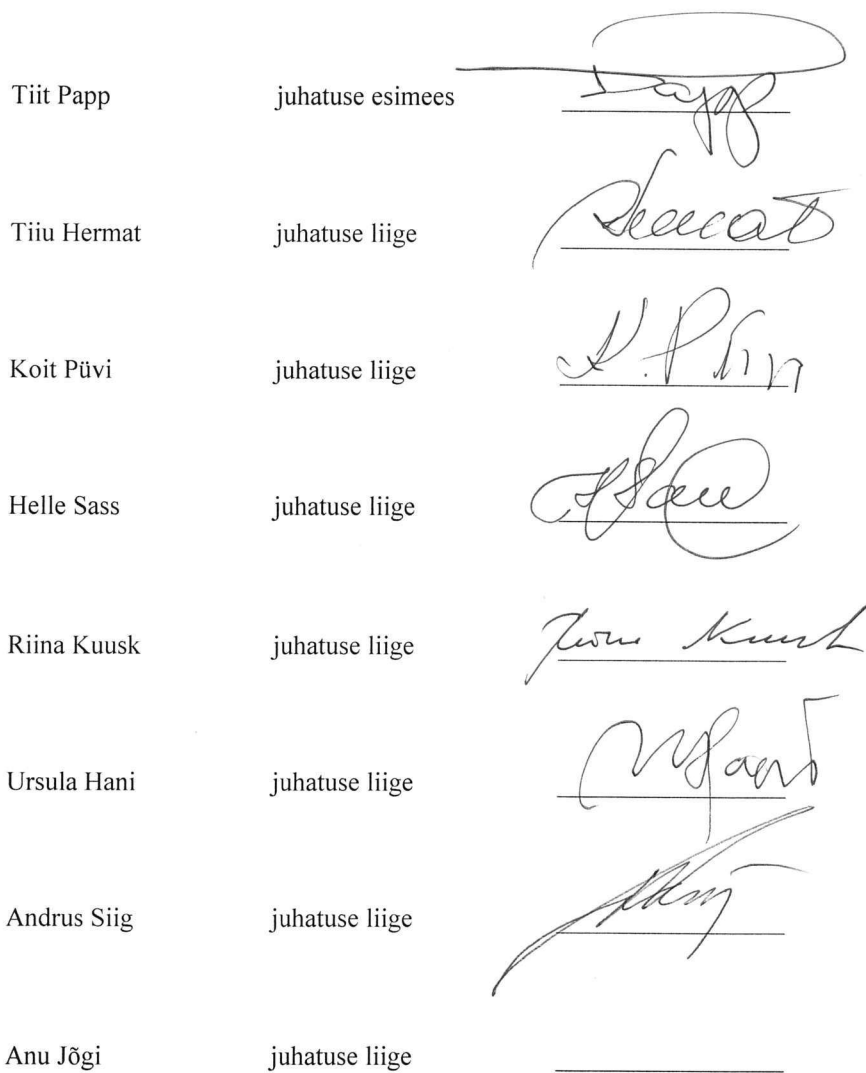 Tiit Papp juhatuse esimees Papp
Tiiu Hermat juhatuse liige Hermat
Koit Püvi juhatuse liige K. Püvi
Helle Sass juhatuse liige HSass
Riina Kuusk juhatuse liige Riina Kuusk
Ursula Hani juhatuse liige
Andrus Siig juhatuse liige
Anu Jõgi juhatuse liige